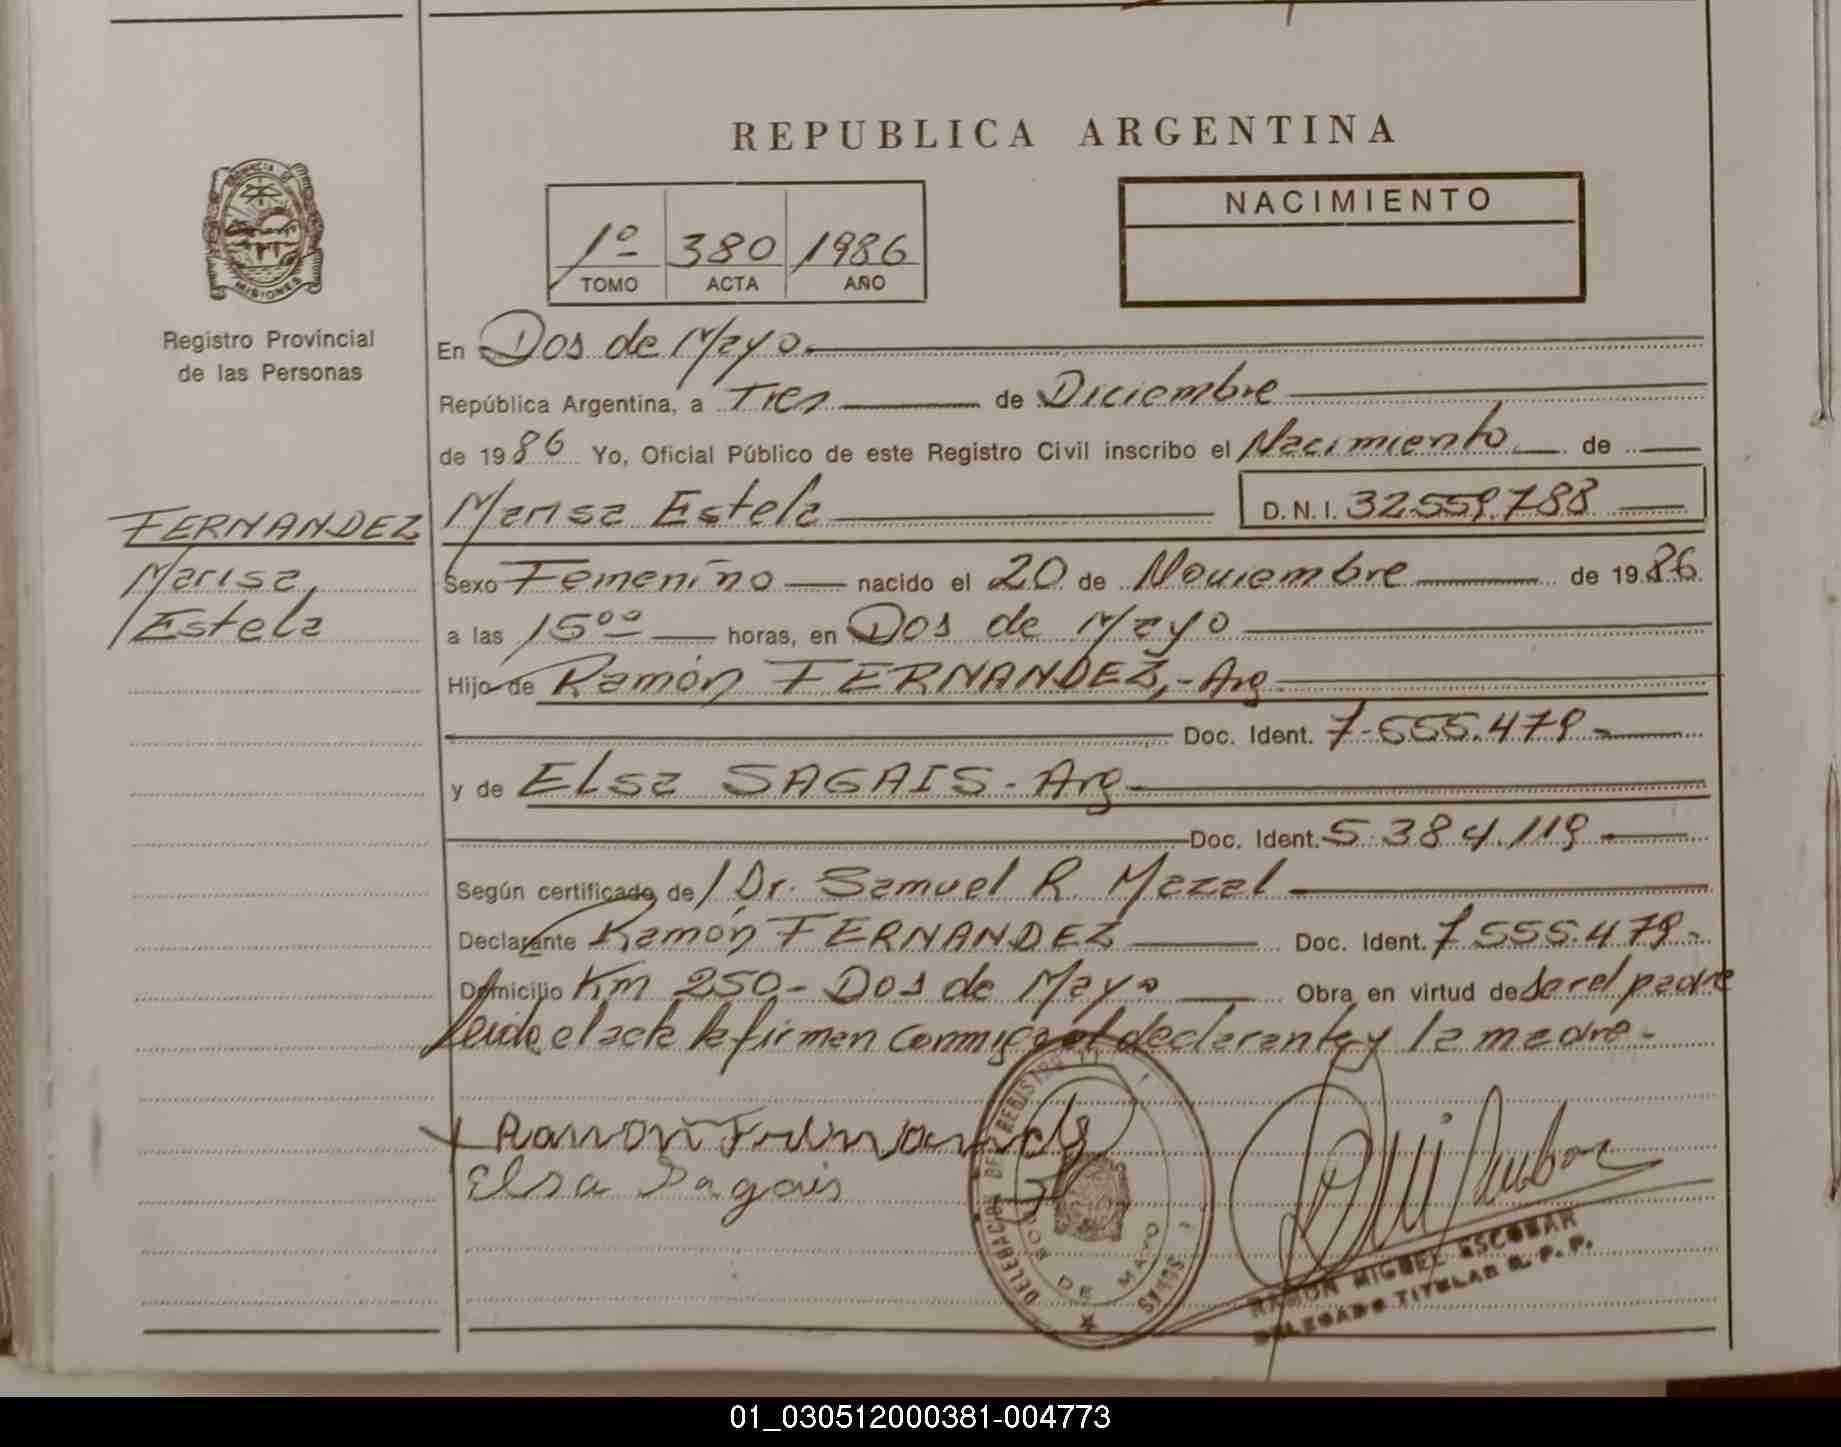 REPUBLICA ARGENTINA
PROVINCIA DE
MISIONES
Registro Provincial
de las Personas
1º 380 1986
TOMO ACTA AÑO
NACIMIENTO
En Dos de Mayo
República Argentina, a Tres de Diciembre
de 1986 Yo, Oficial Público de este Registro Civil inscribo el Nacimiento de
FERNANDEZ
Marisa
Estela
Marisa Estela D.N.I. 32559.788
Sexo Femenino nacido el 20 de Noviembre de 1986
a las 15ºº horas, en Dos de Mayo
Hijo de Ramón FERNANDEZ,- Arg
Doc. Ident. 7.555.479
y de Elsa SAGAIS - Arg
Doc. Ident. 5.384.119
Según certificado de Dr. Samuel R. Mazal
Declarante Ramón FERNANDEZ Doc. Ident. 7.555.479-
Domicilio Km 250- Dos de Mayo Obra en virtud de ser el padre
leida el acta la firman conmigo el declarante y la madre-
Ramon Fernandez
Elsa Sagais
DELEGACION DEL REGISTRO
DOS DE MAYO
RAMON MIGUEL ESCOBAR
DELEGADO TITULAR R. P. P.
01_030512000381-004773